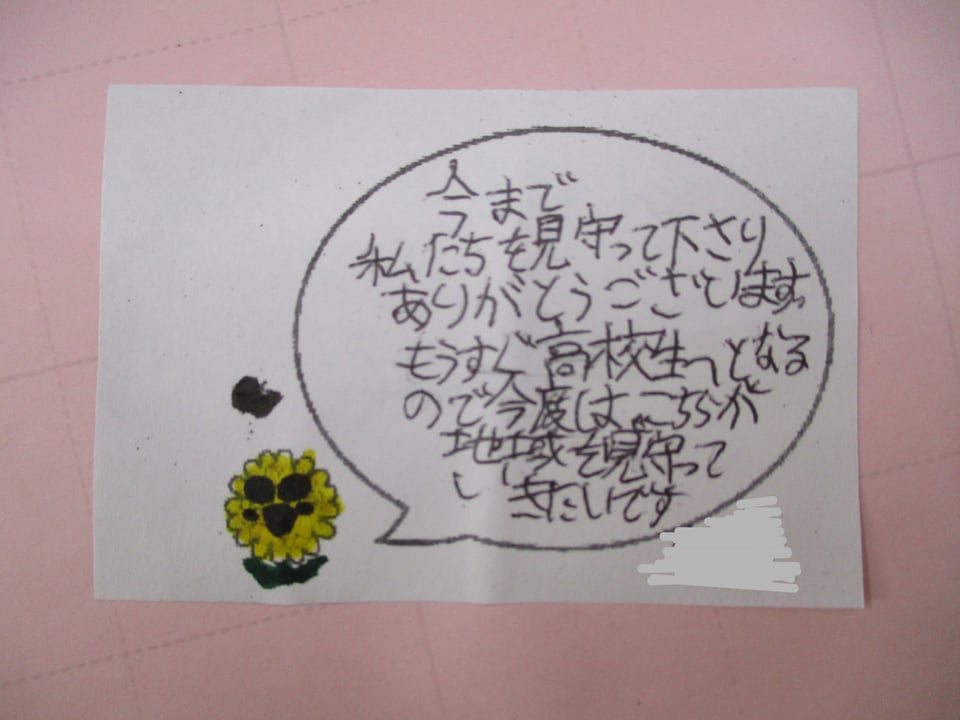 今まで
私たちを見守って下さり
ありがとうございます。
もうすぐ高校生へとなる
ので今度はこちらが
地域を見守って
いきたいです